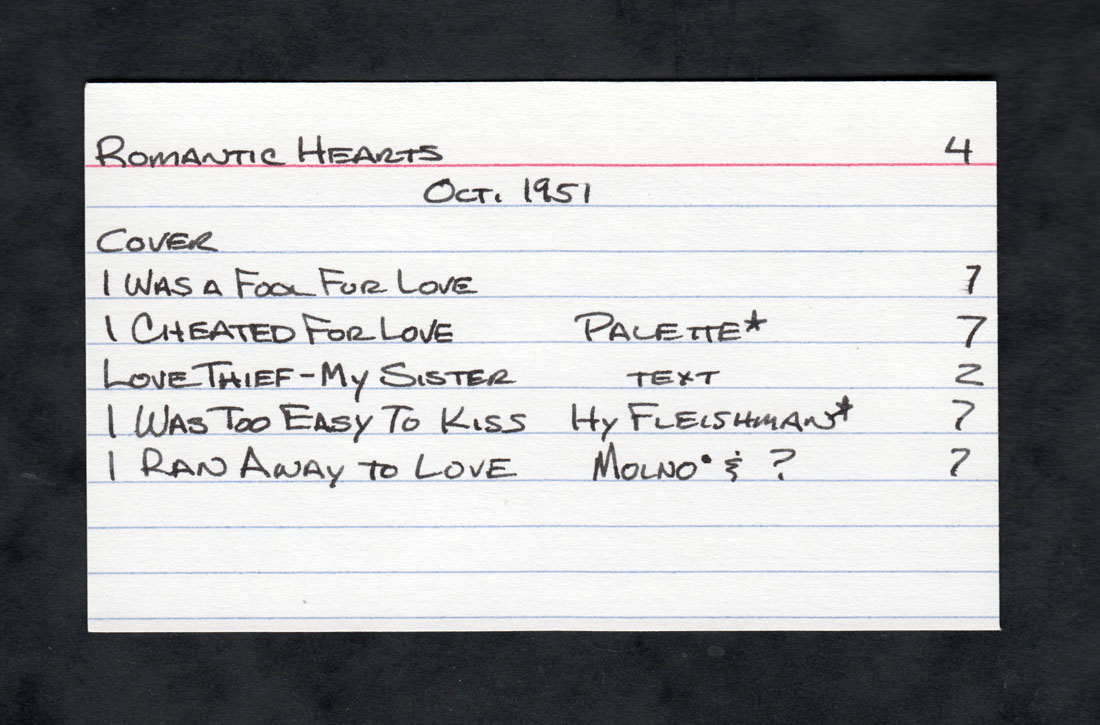 ROMANTIC HEARTS 4
OCT. 1951
COVER
I WAS A FOOL FUR LOVE 7
I CHEATED FOR LOVE PALETTE* 7
LOVE THIEF-MY SISTER TEXT 2
I WAS TOO EASY TO KISS HY FLEISHMAN* 7
I RAN AWAY TO LOVE MOLNO• & ? 7